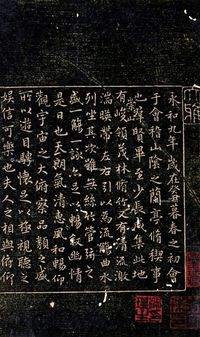 永和九年歲在癸丑暮春之初會
于會稽山陰之蘭亭脩稧事
也群賢畢至少長咸集此地
有崇山峻領茂林脩竹又有清流激
湍暎帶左右引以為流觴曲水
列坐其次雖無絲竹管弦之
盛一觴一詠亦足以暢敘幽情
是日也天朗氣清惠風和暢仰
觀宇宙之大俯察品類之盛
所以遊目騁懷足以極視聽之
娛信可樂也夫人之相與俯仰